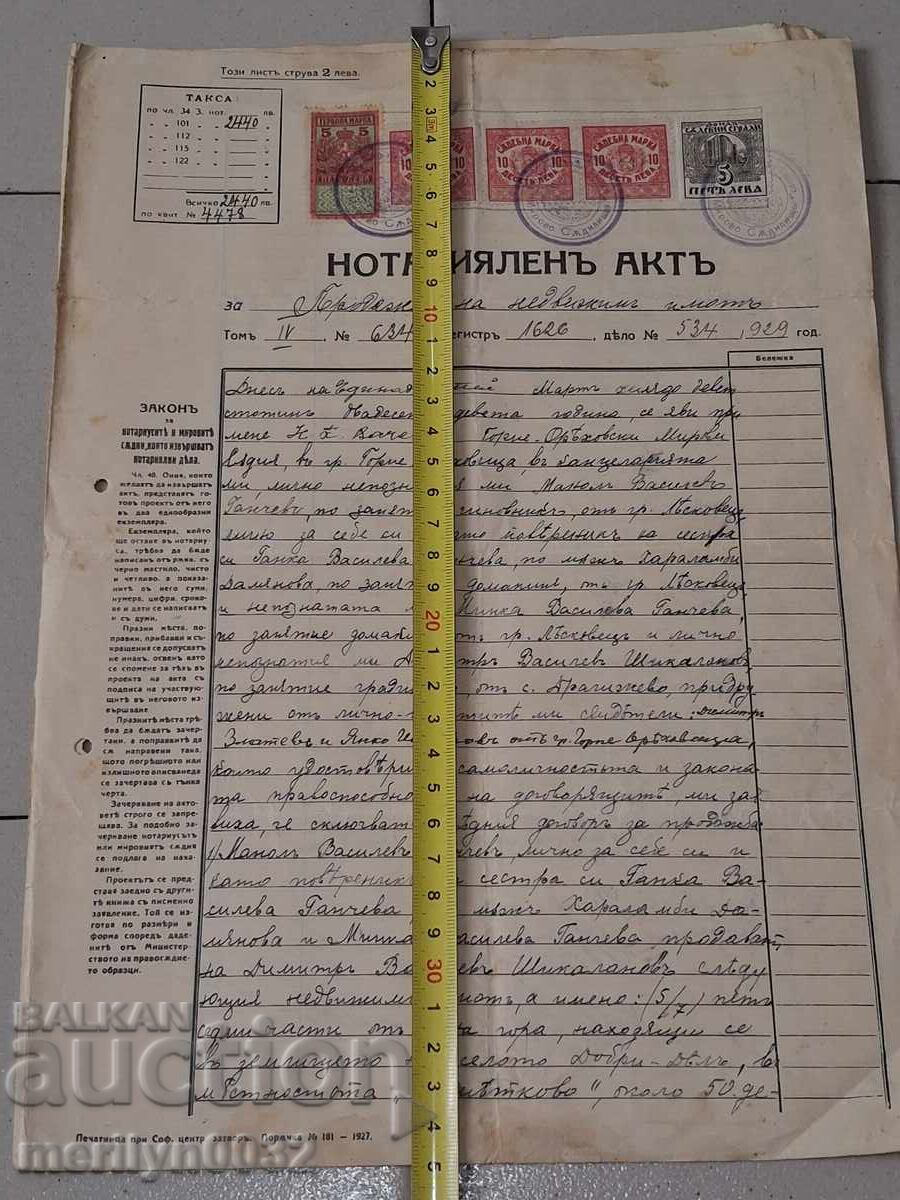 Този листъ струва 2 лева.
ТАКСА
по чл. 34 З. нот. лв.
" " 101 " 2440
" " 112 "
" " 115 "
" " 122 "
Всичко 2440 лв.
по квит. № 4478
ГЕРБОВА МАРКА
5 5
10 10
СѪДЕБНА МАРКА
10 10
ДЕСЕТЬ ЛЕВА
СѪДЕБНА МАРКА
10 10
ДЕСЕТЬ ЛЕВА
ФОНДЪ
СѪДЕБНИ СГРАДИ
5
ПЕТЬ ЛЕВА
НОТ ИЯЛЕНЪ АКТЪ
за Продаж на недвижимъ имотъ
Томъ IV, № 634 егистръ 1626, дѣло № 534, 929 год.
Бележка
ЗАКОНЪ
за
нотариусите и мировите
сѫдии, които извършватъ
нотариални дѣла.
Чл. 40. Ония, които
желаятъ да извършатъ
актъ, представятъ го-
товъ проектъ отъ него
въ два еднообразни
екземпляра.
Екземпляра, който
ще остане въ нотариу-
са, трѣбва да бѫде
написанъ отъ ржка, съ
черно мастило, чисто
и четливо, а показа-
ните въ него суми,
нумера, цифри, сроко-
ве и дати се написватъ
съ думи.
Празни мѣста, по-
правки, прибавки и съ-
кращения се допускатъ
не инакъ, освенъ като
се спомене за тѣхъ въ
проекта на акта съ
подписа на участвую-
щитѣ въ неговото из-
вършване
Празнитѣ мѣста трѣ-
бва да бѫдатъ зачер-
тани, а поправките да
сѫ направени така,
щото погрѣшното или
излишното вписване да
се зачертава съ тънка
черта.
Зачеркване на акто-
ветѣ строго се запре-
щава. За подобно за-
черкване нотариусътъ
или мировиятъ сѫдия
се подлага на нака-
зание.
Проектътъ се пред-
ставя заедно съ други-
тѣ книжа съ писменно
заявление. Той се из-
готвя по размѣри и
форма споредъ даде-
ните отъ Министер-
ството на правосѫдие-
то образци.
Днесъ на Един Мартъ хилядо девет
стотинъ двадесет девета година, се яви при
мене Н. Горне-Орѣховски Мирови
Сѫдия, въ гр. Горне ховица, въ канцеларията
ми, лично непозн ми Манолъ Василевъ
Ганчевъ, по занят чиновникъ, отъ гр. Лѣсковецъ,
лично за себе си то повѣреникъ на сестра
си Ганка Василева нчева, по мѫжъ Хараламби
Дамянова, по занят домакиня, отъ гр. Лѣсковецъ,
и непознатата Минка Василева Ганчева,
по занятие домаки отъ гр. Лѣсковецъ и лично
непознатия ми тръ Василевъ Шикалановъ,
по занятие гради отъ с. Драгижево, придру
жени отъ лично- тите ми свидѣтели: Димитръ
Златевъ и Янко въ отъ гр. Горне Орѣховица,
които удостовѣри самоличностьта и закона
та правоспособно на договорящитѣ, ми зая
виха, че сключват едния договоръ за продажба:
Манолъ Василевъ чевъ, лично за себе си и
като повѣреникъ сестра си Ганка Ва-
силева Ганчева, мѫжъ Хараламби Да-
мянова и Минка асилева Ганчева, продаватъ
на Димитръ Ва евъ Шикалановъ слѣду
ющия недвижим мотъ, а имено: (5/7) петь
седми части отъ на гора, находящи се
въ землището селото Добри-Дѣлъ, въ
мѣстностьта ѣтково", около 50 де-
Печатница при Соф. центр. затворъ. Поржчка № 181 — 1927.
2
3m
4
5
6
7
8
9
10
1
2
3
4
5
6
7
8
9
20
1
2
3
4
5
6
7
8
9
30
1
2
3
4
5
BALKAN
auction
merilyn0032